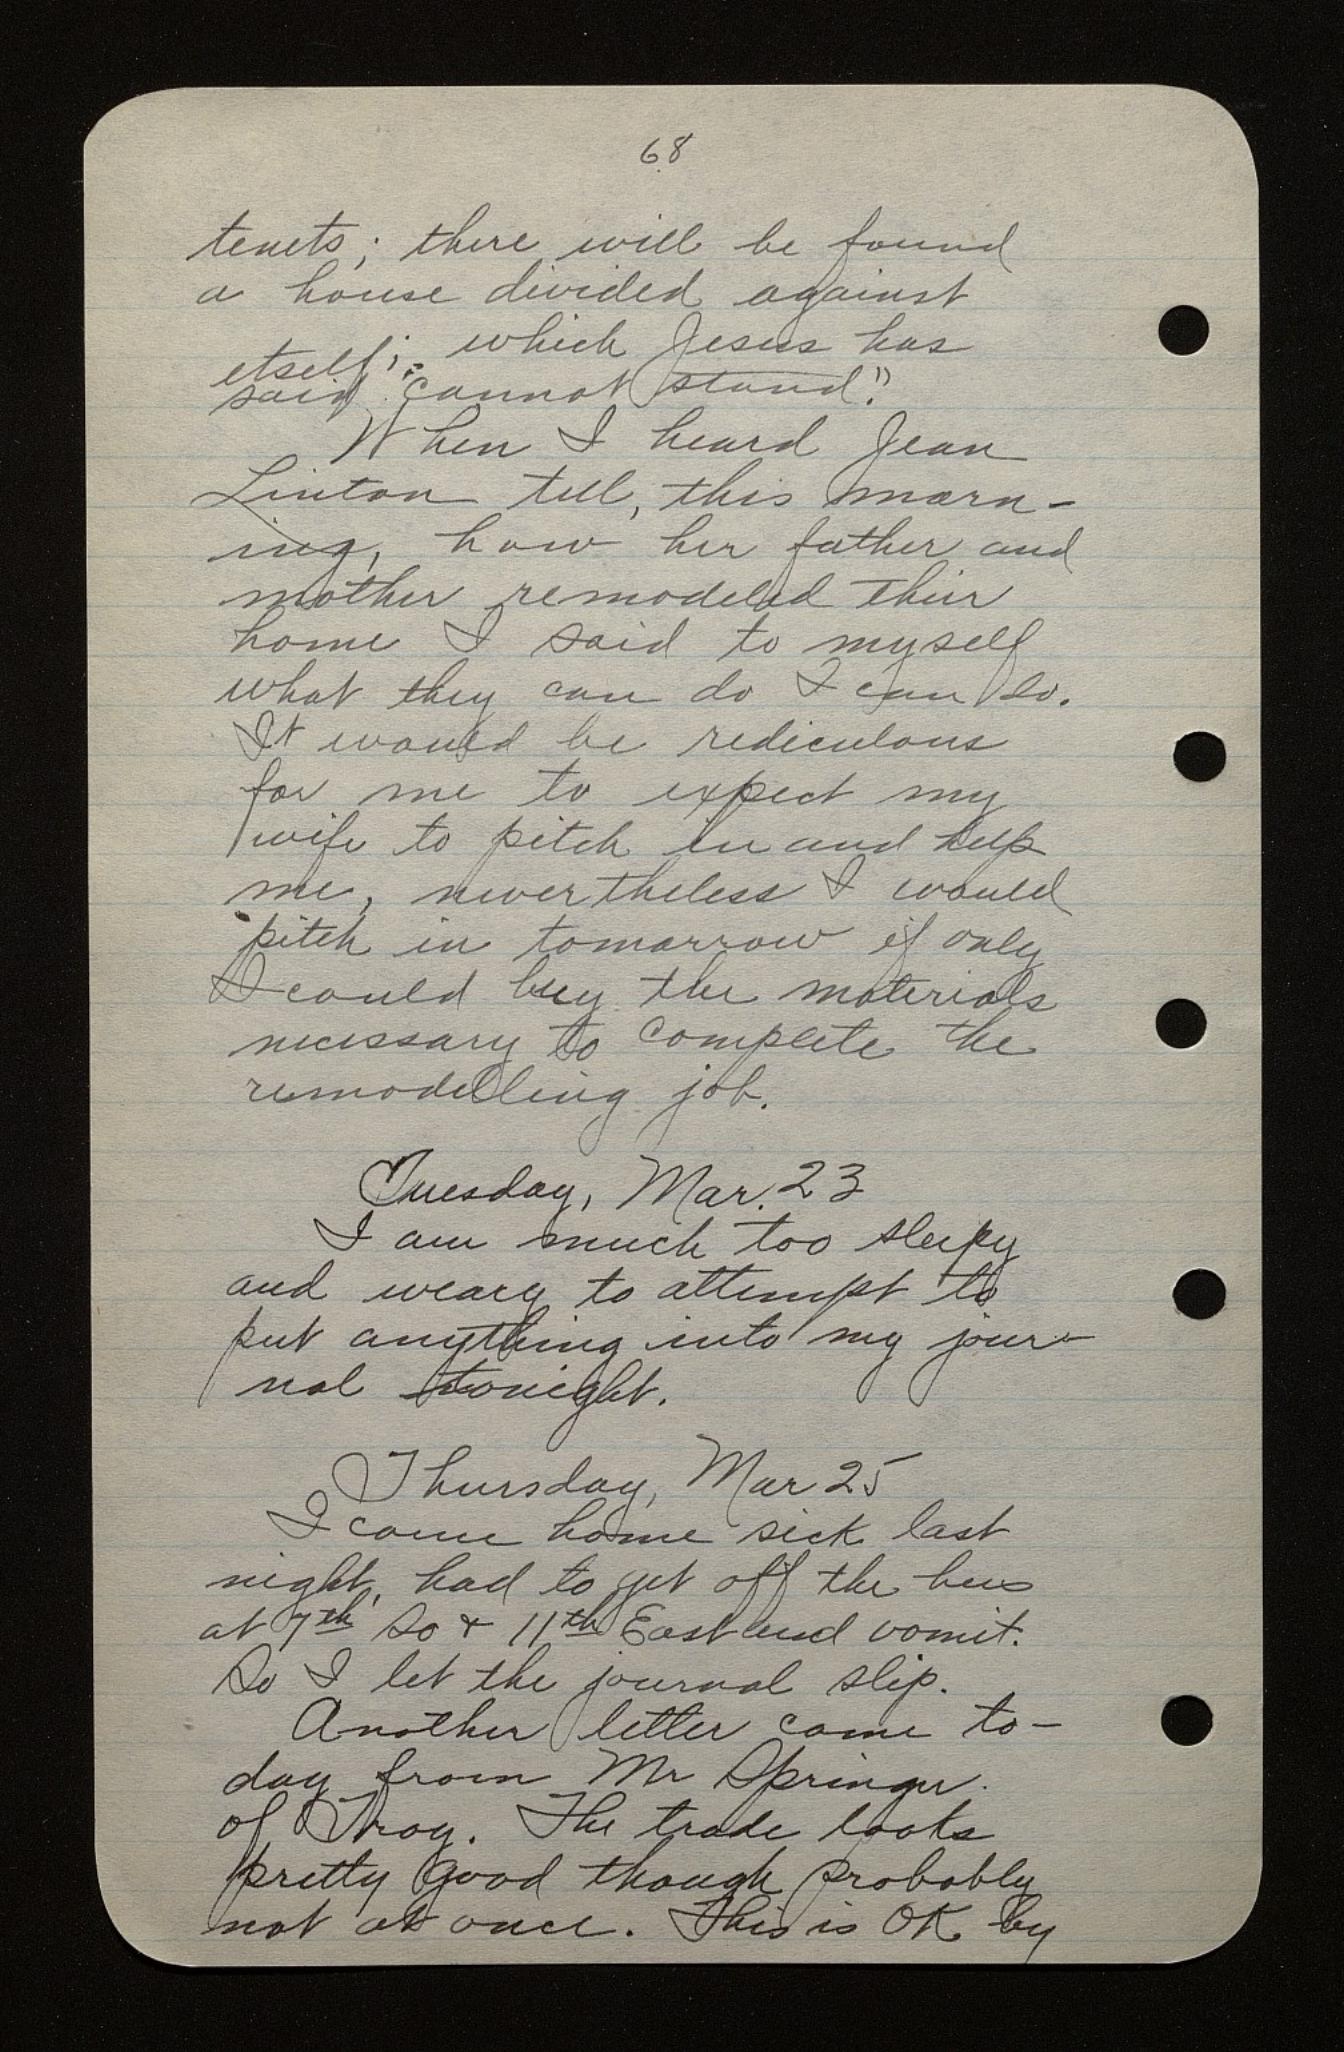 68
tenets; there will be found
a house divided against
itself; which Jesus has
said "cannot stand."
When I heard Jean
Linton tell, this morn-
ing, how her father and
mother remodeled their
home I said to myself
what they can do I can do.
It would be rediculous
for me to expect my
wife to pitch in and help
me, nevertheless I would
pitch in tomorrow if only
I could buy the materials
necessary to complete the
remodelling job.
Tuesday, Mar. 23
I am much too sleepy
and weary to attempt to
put anything into my jour-
nal tonight.
Thursday, Mar 25
I came home sick last
night, had to get off the bus
at 7th So + 11th East and vomit.
So I let the journal slip.
Another letter came to-
day from Mr Springer
of Troy. The trade looks
pretty good though probably
not at once. This is OK by